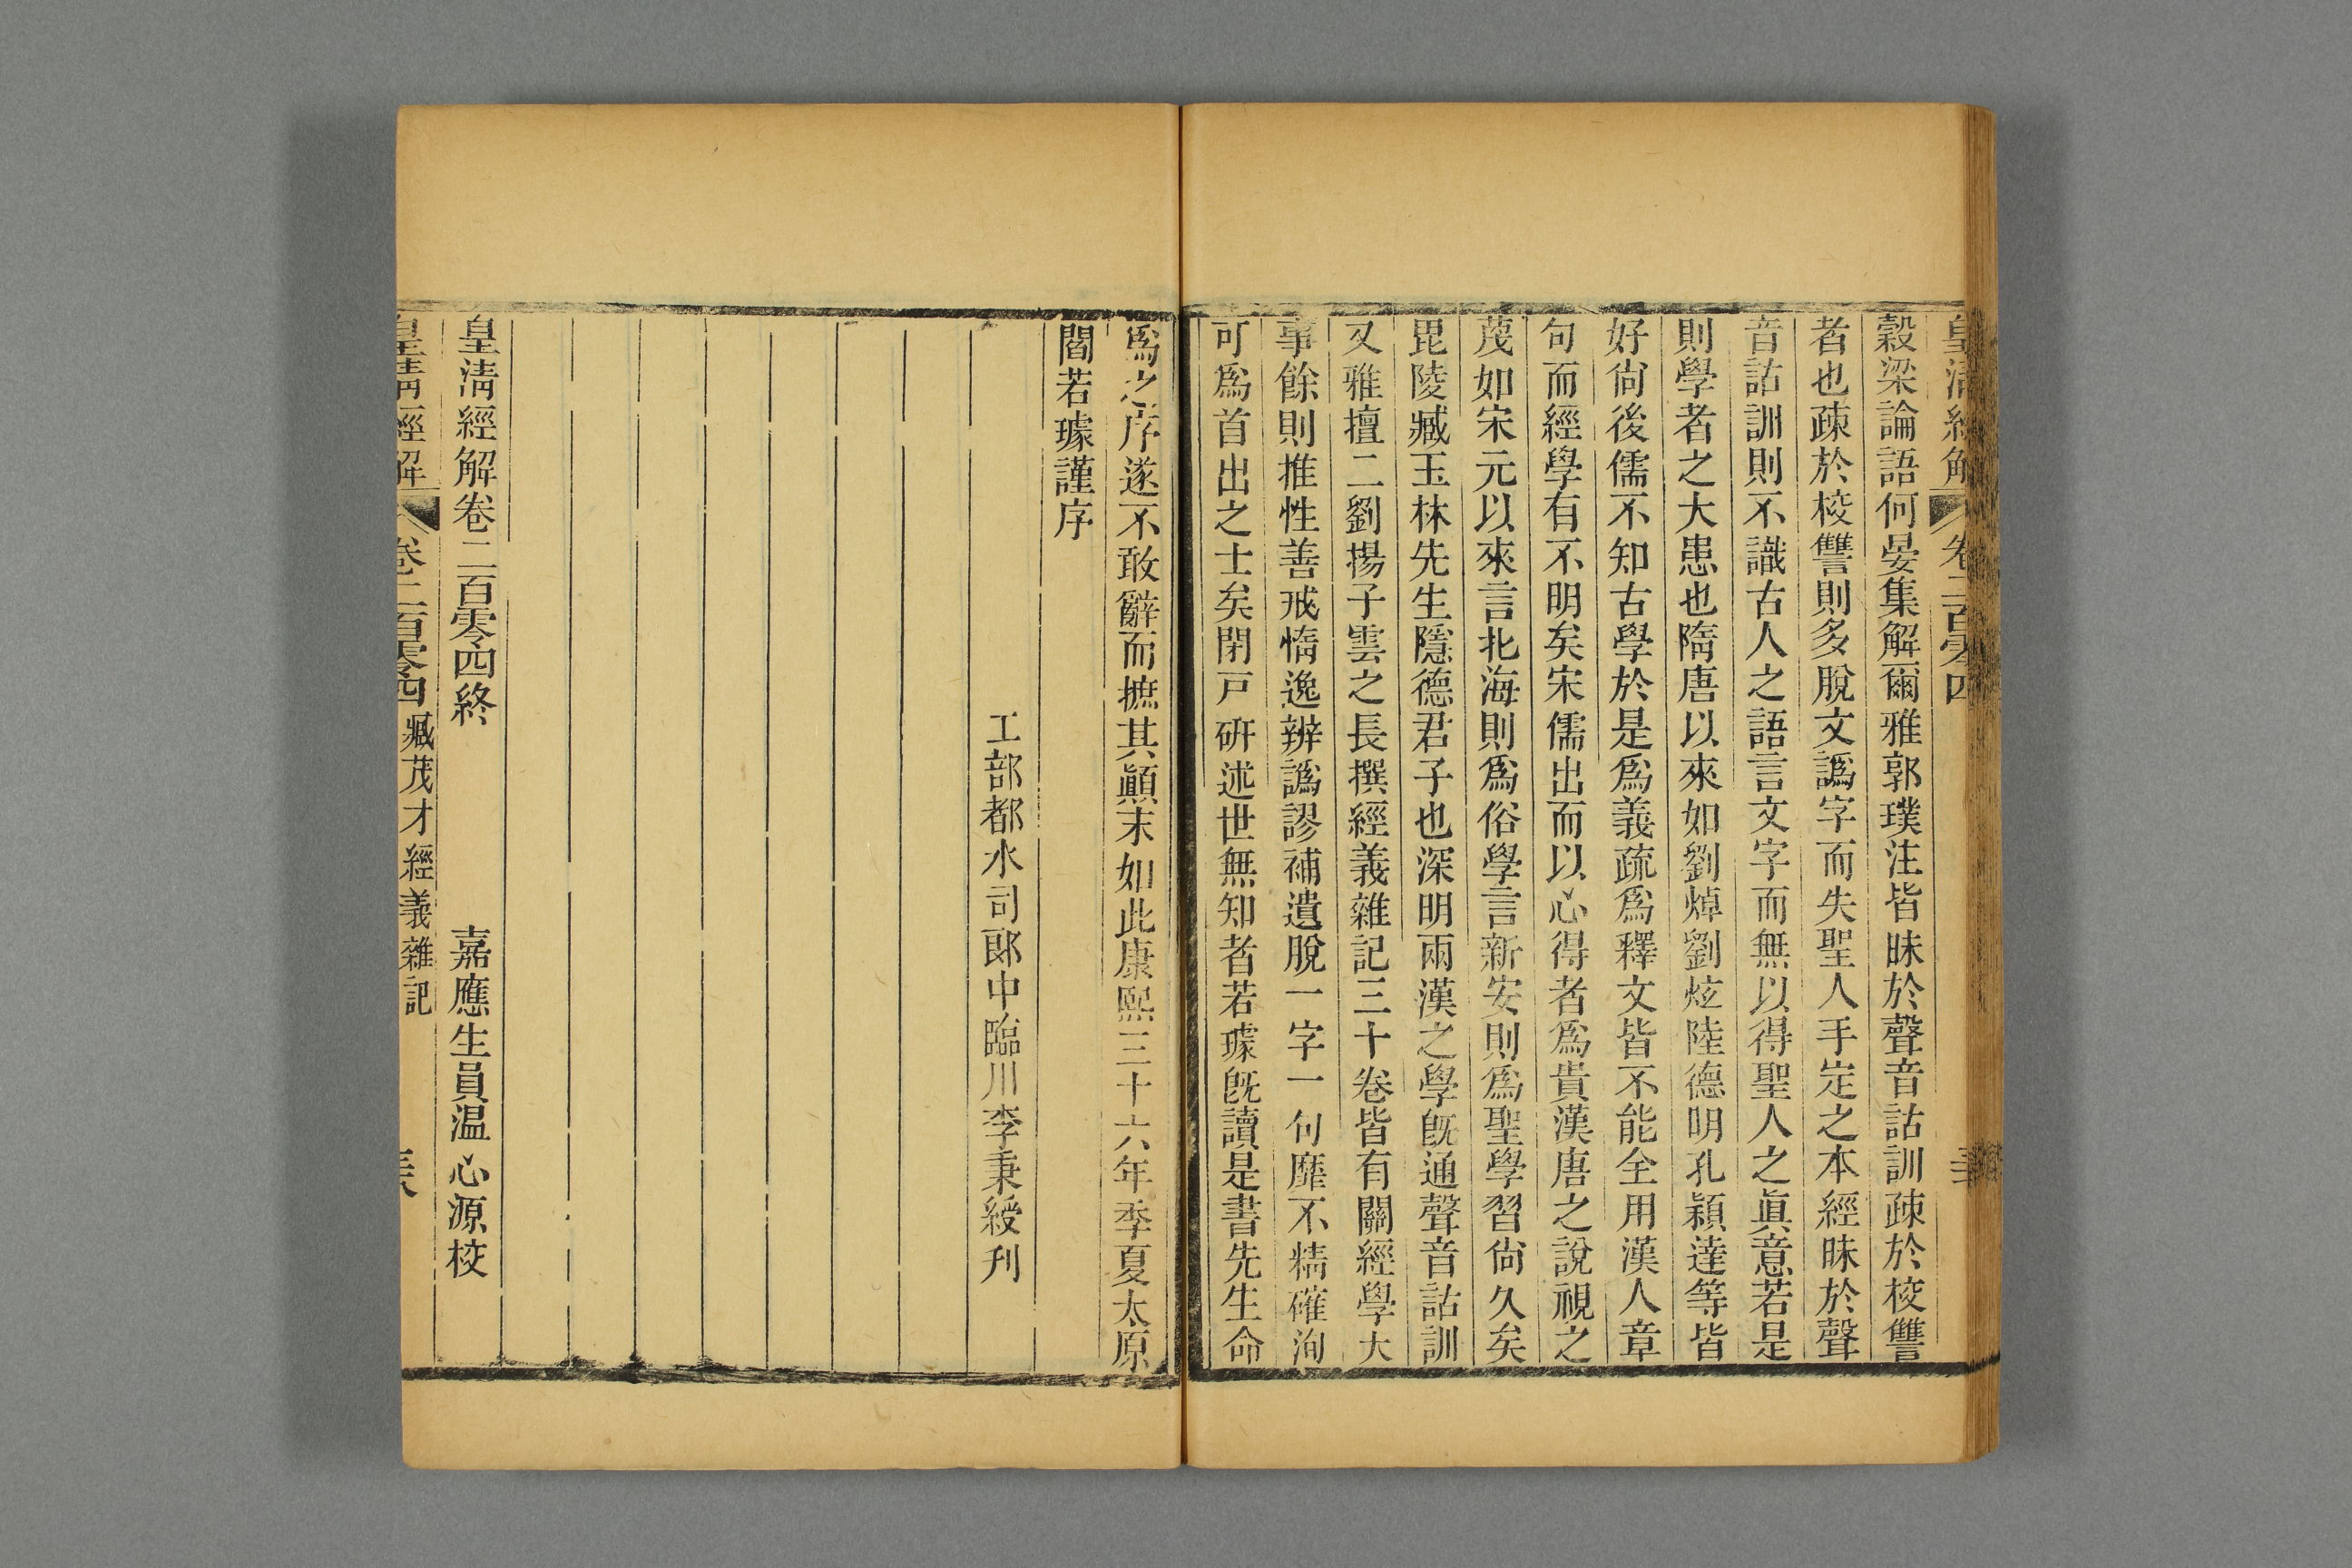 皇清經解 卷二百零四
穀梁論語何晏集解爾雅郭璞注皆昧於聲音詁訓疎於校讐
者也疎於校讐則多脫文譌字而失聖人手定之本經昧於聲
音詁訓則不識古人之語言文字而無以得聖人之眞意若是
則學者之大患也隋唐以來如劉焯劉炫陸德明孔穎達等皆
好尙後儒不知古學於是爲義疏爲釋文皆不能全用漢人章
句而經學有不明矣宋儒出而以心得者爲貴漢唐之說視之
蔑如宋元以來言北海則爲俗學言新安則爲聖學習尙久矣
毘陵臧玉林先生隱德君子也深明兩漢之學旣通聲音詁訓
又雅擅二劉揚子雲之長撰經義雜記三十卷皆有關經學大
事餘則推性善戒惰逸辨譌謬補遺脫一字一句靡不精確洵
可爲首出之士矣閉戸硏述世無知者若璩旣讀是書先生命
爲之序遂不敢辭而摭其顚末如此康熙三十六年季夏太原
閻若璩謹序
工部都水司郎中臨川李秉綬刋
皇清經解卷二百零四終 嘉應生員温心源校
皇清經解 卷二百零四 臧茂才經義雜記 三八